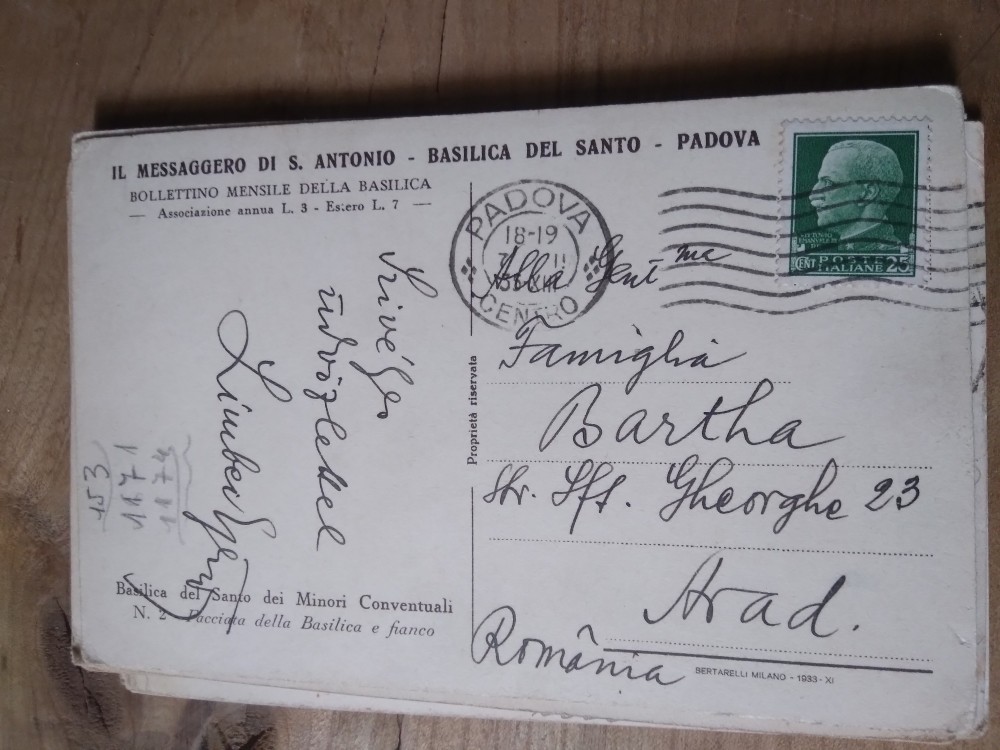 IL MESSAGGERO DI S. ANTONIO - BASILICA DEL SANTO - PADOVA
BOLLETTINO MENSILE DELLA BASILICA
— Associazione annua L. 3 - Estero L. 7 —
PADOVA
18-19
CENTRO
POSTE
CENT ITALIANE 25
Alla Gent me
Famiglia
Bartha
Str. Sft. Gheorghe 23
Arad.
România
Proprietà riservata
Szivélyes
üdvözlettel
153
1171
1174
Basilica del Santo dei Minori Conventuali
N. 2 - Facciata della Basilica e fianco
BERTARELLI MILANO - 1933 - XI